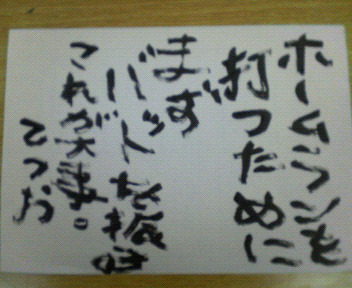 ホームランを
打つために
まず
バットを振る
これが大事。
てつお